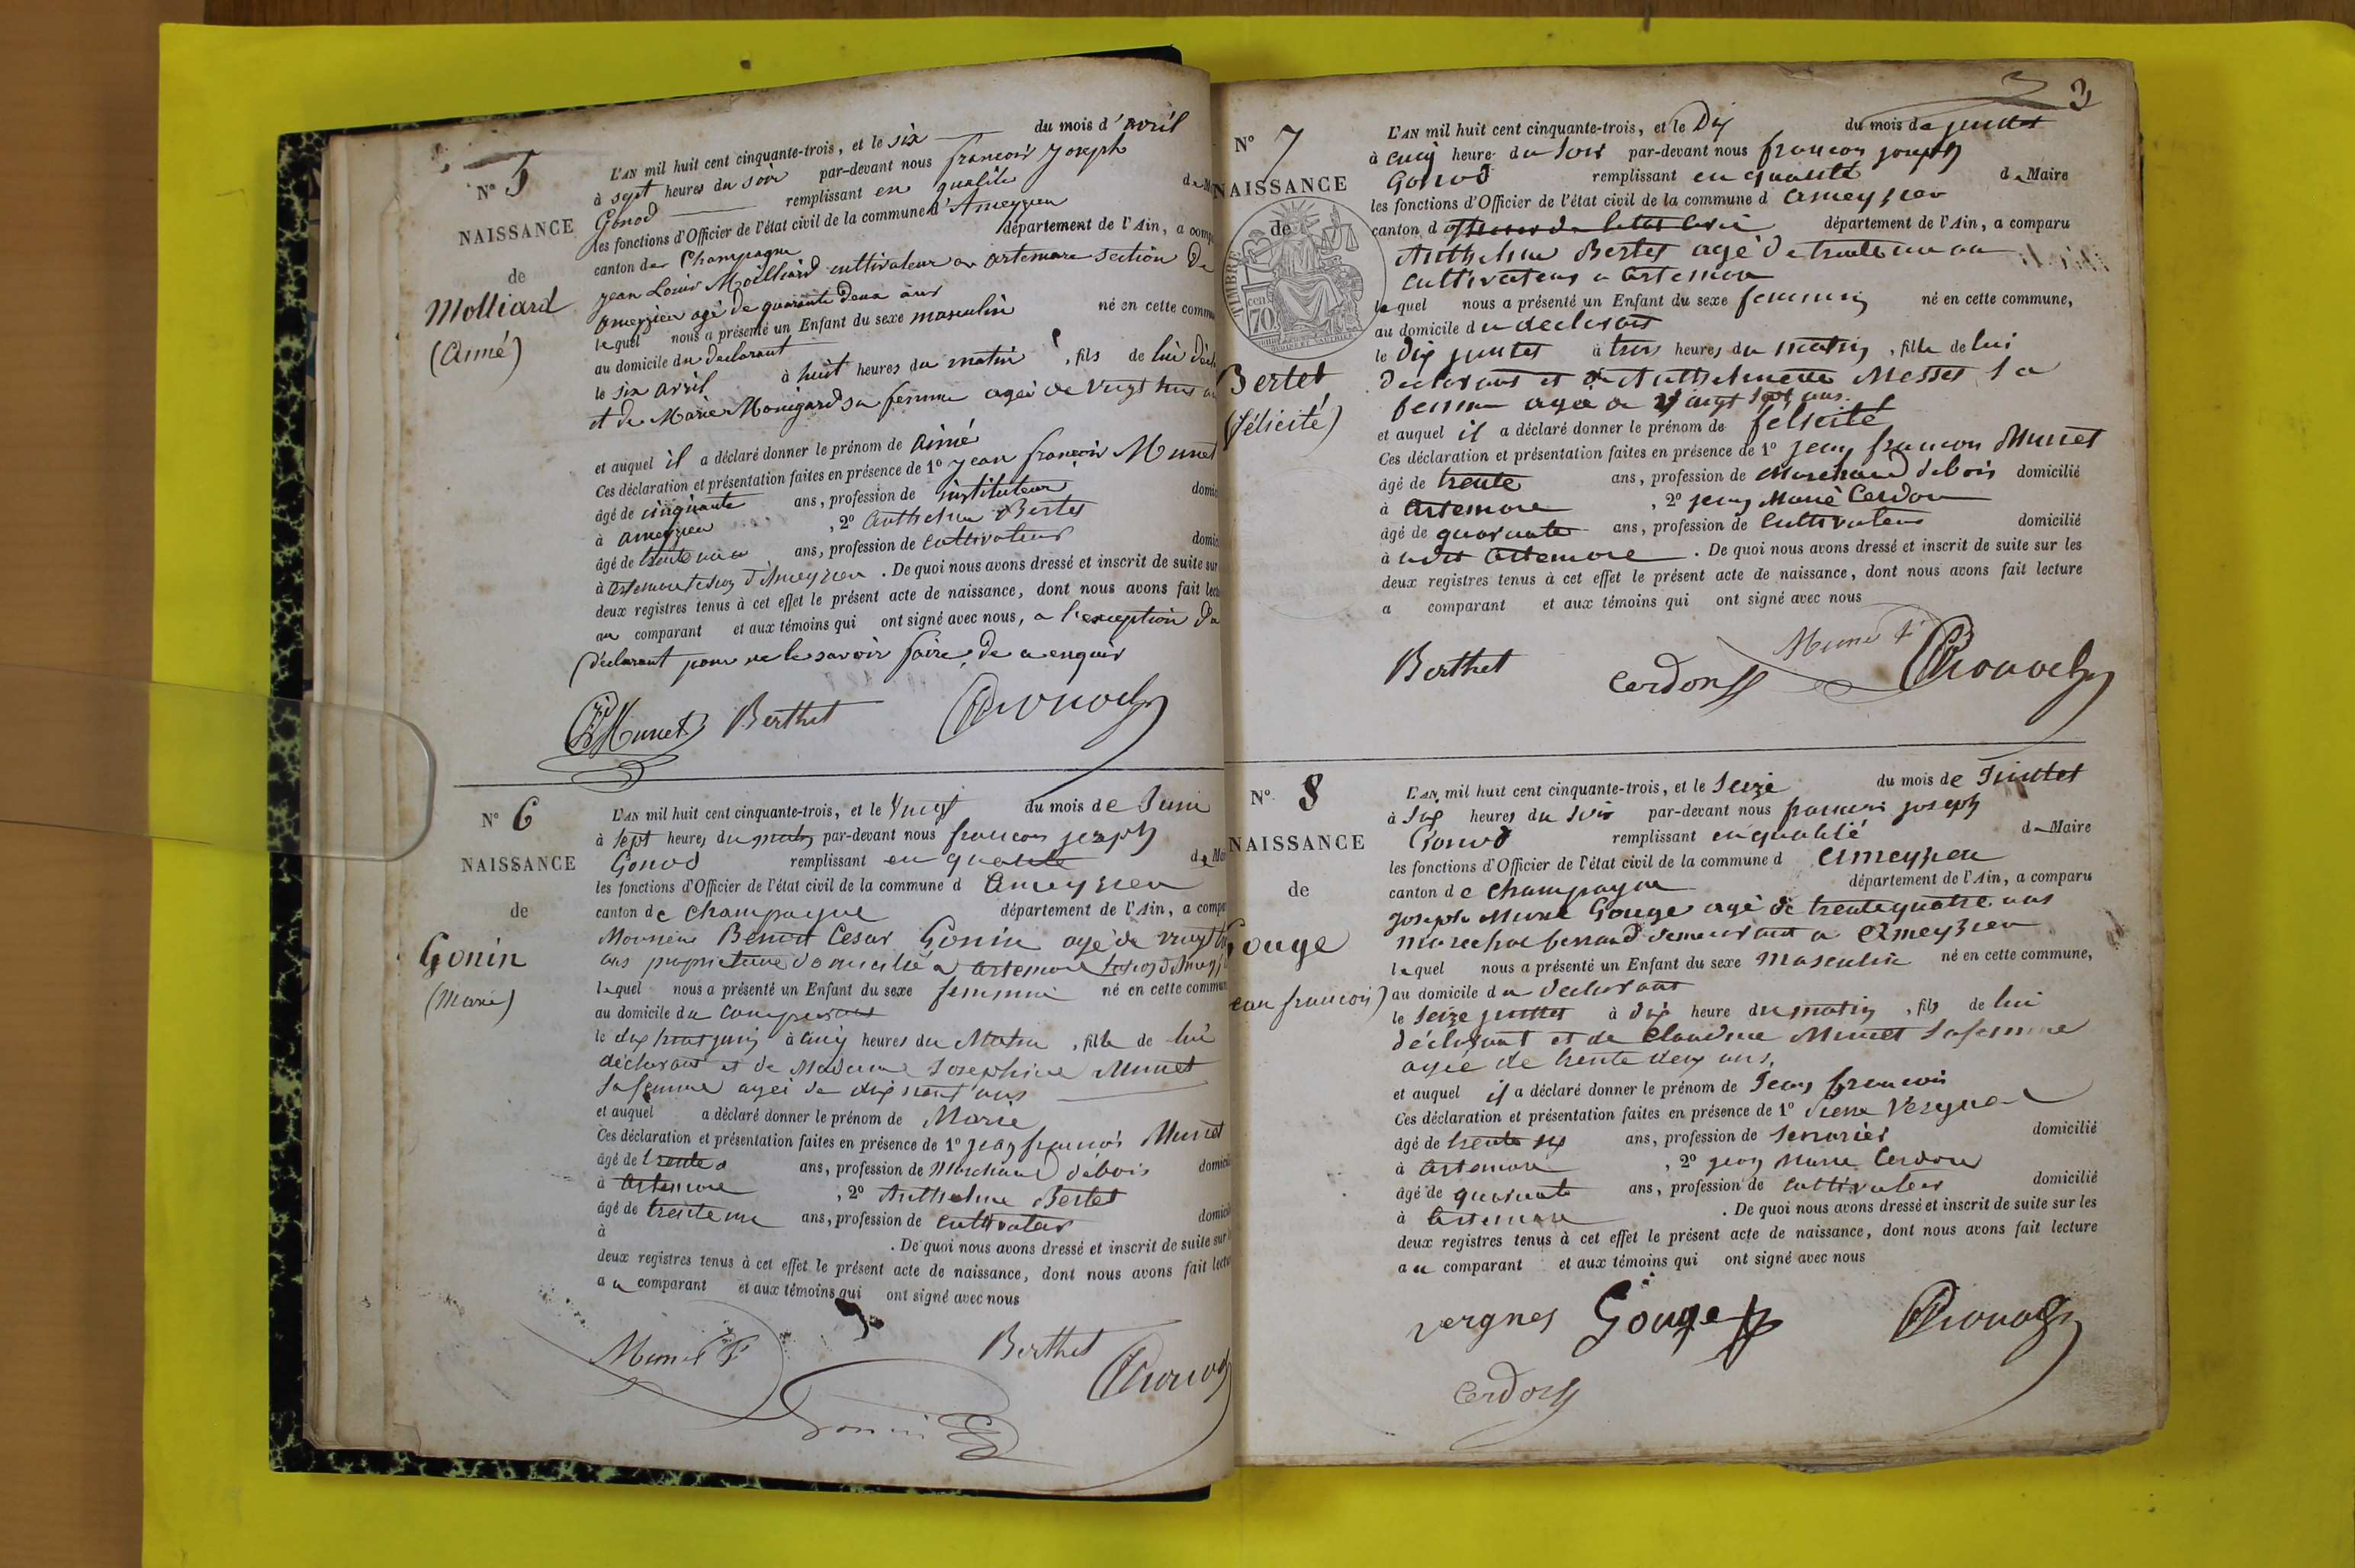 N° 5
NAISSANCE
de
Molliard
(Aimé)
L'AN mil huit cent cinquante-trois, et le six du mois d'avril
à sept heures du soir par-devant nous françois Joseph
Gonod remplissant en qualité de M
les fonctions d'Officier de l'état civil de la commune d'Ameyzieu
canton de Champagne département de l'Ain, a comp
Jean Louis Molliard cultivateur a artemare section de
Ameyzieu agé de quarante deux ans
lequel nous a présenté un Enfant du sexe masculin né en cette commu
au domicile du declarant
le six avril à huit heures du matin, fils de lui décl
et de Marie sa femme agée de vingt
et auquel il a déclaré donner le prénom de aimé
Ces déclaration et présentation faites en présence de 1° Jean françois Munet
âgé de cinquante ans, profession de instituteur domic
à ameyzieu, 2° Anthelme Bertet
âgé de trente un ans, profession de cultivateur domic
à artemare d'Ameyzieu. De quoi nous avons dressé et inscrit de suite sur
deux registres tenus à cet effet le présent acte de naissance, dont nous avons fait lect
au comparant et aux témoins qui ont signé avec nous, a l'exception du
déclarant pour ne le savoir faire, de ce enquis
Munet Berthet
N° 6
NAISSANCE
de
Gonin
(Marie)
L'AN mil huit cent cinquante-trois, et le vingt du mois de Juin
à sept heures du matin par-devant nous francois joseph
Gonod remplissant en qualité de Mai
les fonctions d'Officier de l'état civil de la commune d Ameyzieu
canton de Champagne département de l'Ain, a compa
Monsieur Benoit Cesar Gonin agé de vingt
ans proprietaire domicilié a artemare
lequel nous a présenté un Enfant du sexe feminin né en cette commun
au domicile du comparant
le dix huit juin à cinq heures du Matin, fille de lui
déclarant et de Madame Josephine Munet
sa femme agée de dix neuf ans
et auquel a déclaré donner le prénom de Marie
Ces déclaration et présentation faites en présence de 1° jean francois Munet
âgé de trente ans, profession de Marchand de bois domicil
à artemare, 2° Anthelme Bertet
âgé de trente un ans, profession de cultivateur domicil
à . De quoi nous avons dressé et inscrit de suite sur l
deux registres tenus à cet effet le présent acte de naissance, dont nous avons fait lectu
au comparant et aux témoins qui ont signé avec nous
Munet Berthet
Gonin
3
N° 7
NAISSANCE
de
TIMBRE
70
Bertet
(félicité)
L'AN mil huit cent cinquante-trois, et le Dix du mois de juillet
à cinq heure du soir par-devant nous francois joseph
Gonod remplissant en qualité de Maire
les fonctions d'Officier de l'état civil de la commune d Ameyzieu
canton d département de l'Ain, a comparu
Anthelme Bertet agé de trente un an
cultivateur a artemare
lequel nous a présenté un Enfant du sexe feminin né en cette commune,
au domicile du declarant
le dix juillet à trois heures du matin, fille de lui
declarant et de Anthelmette Messet sa
femme agée de vingt sept ans
et auquel il a déclaré donner le prénom de félicité
Ces déclaration et présentation faites en présence de 1° jean francois Munet
âgé de trente ans, profession de Marchand de bois domicilié
à artemare, 2° jean Marie Cerdon
âgé de quarante ans, profession de cultivateur domicilié
à artemare. De quoi nous avons dressé et inscrit de suite sur les
deux registres tenus à cet effet le présent acte de naissance, dont nous avons fait lecture
a comparant et aux témoins qui ont signé avec nous
Munet
Berthet Cerdon
N° 8
NAISSANCE
de
Gouge
ean francois)
L'AN mil huit cent cinquante-trois, et le seize du mois de Juillet
à six heures du soir par-devant nous francois joseph
Gonod remplissant en qualité de Maire
les fonctions d'Officier de l'état civil de la commune d Ameyzieu
canton de Champagne département de l'Ain, a comparu
joseph Marie Gouge agé de trente quatre ans
marechal ferrand demeurant a Ameyzieu
lequel nous a présenté un Enfant du sexe Masculin né en cette commune,
au domicile du declarant
le seize juillet à dix heure du matin, fils de lui
déclarant et de Claudine Munet sa femme
agée de trente deux ans,
et auquel il a déclaré donner le prénom de Jean francois
Ces déclaration et présentation faites en présence de 1° Pierre Vergne
âgé de trente six ans, profession de serrurier domicilié
à artemare, 2° jean Marie Cerdon
âgé de quarante ans, profession de cultivateur domicilié
à artemare. De quoi nous avons dressé et inscrit de suite sur les
deux registres tenus à cet effet le présent acte de naissance, dont nous avons fait lecture
au comparant et aux témoins qui ont signé avec nous
vergnes Gouge
Cerdon